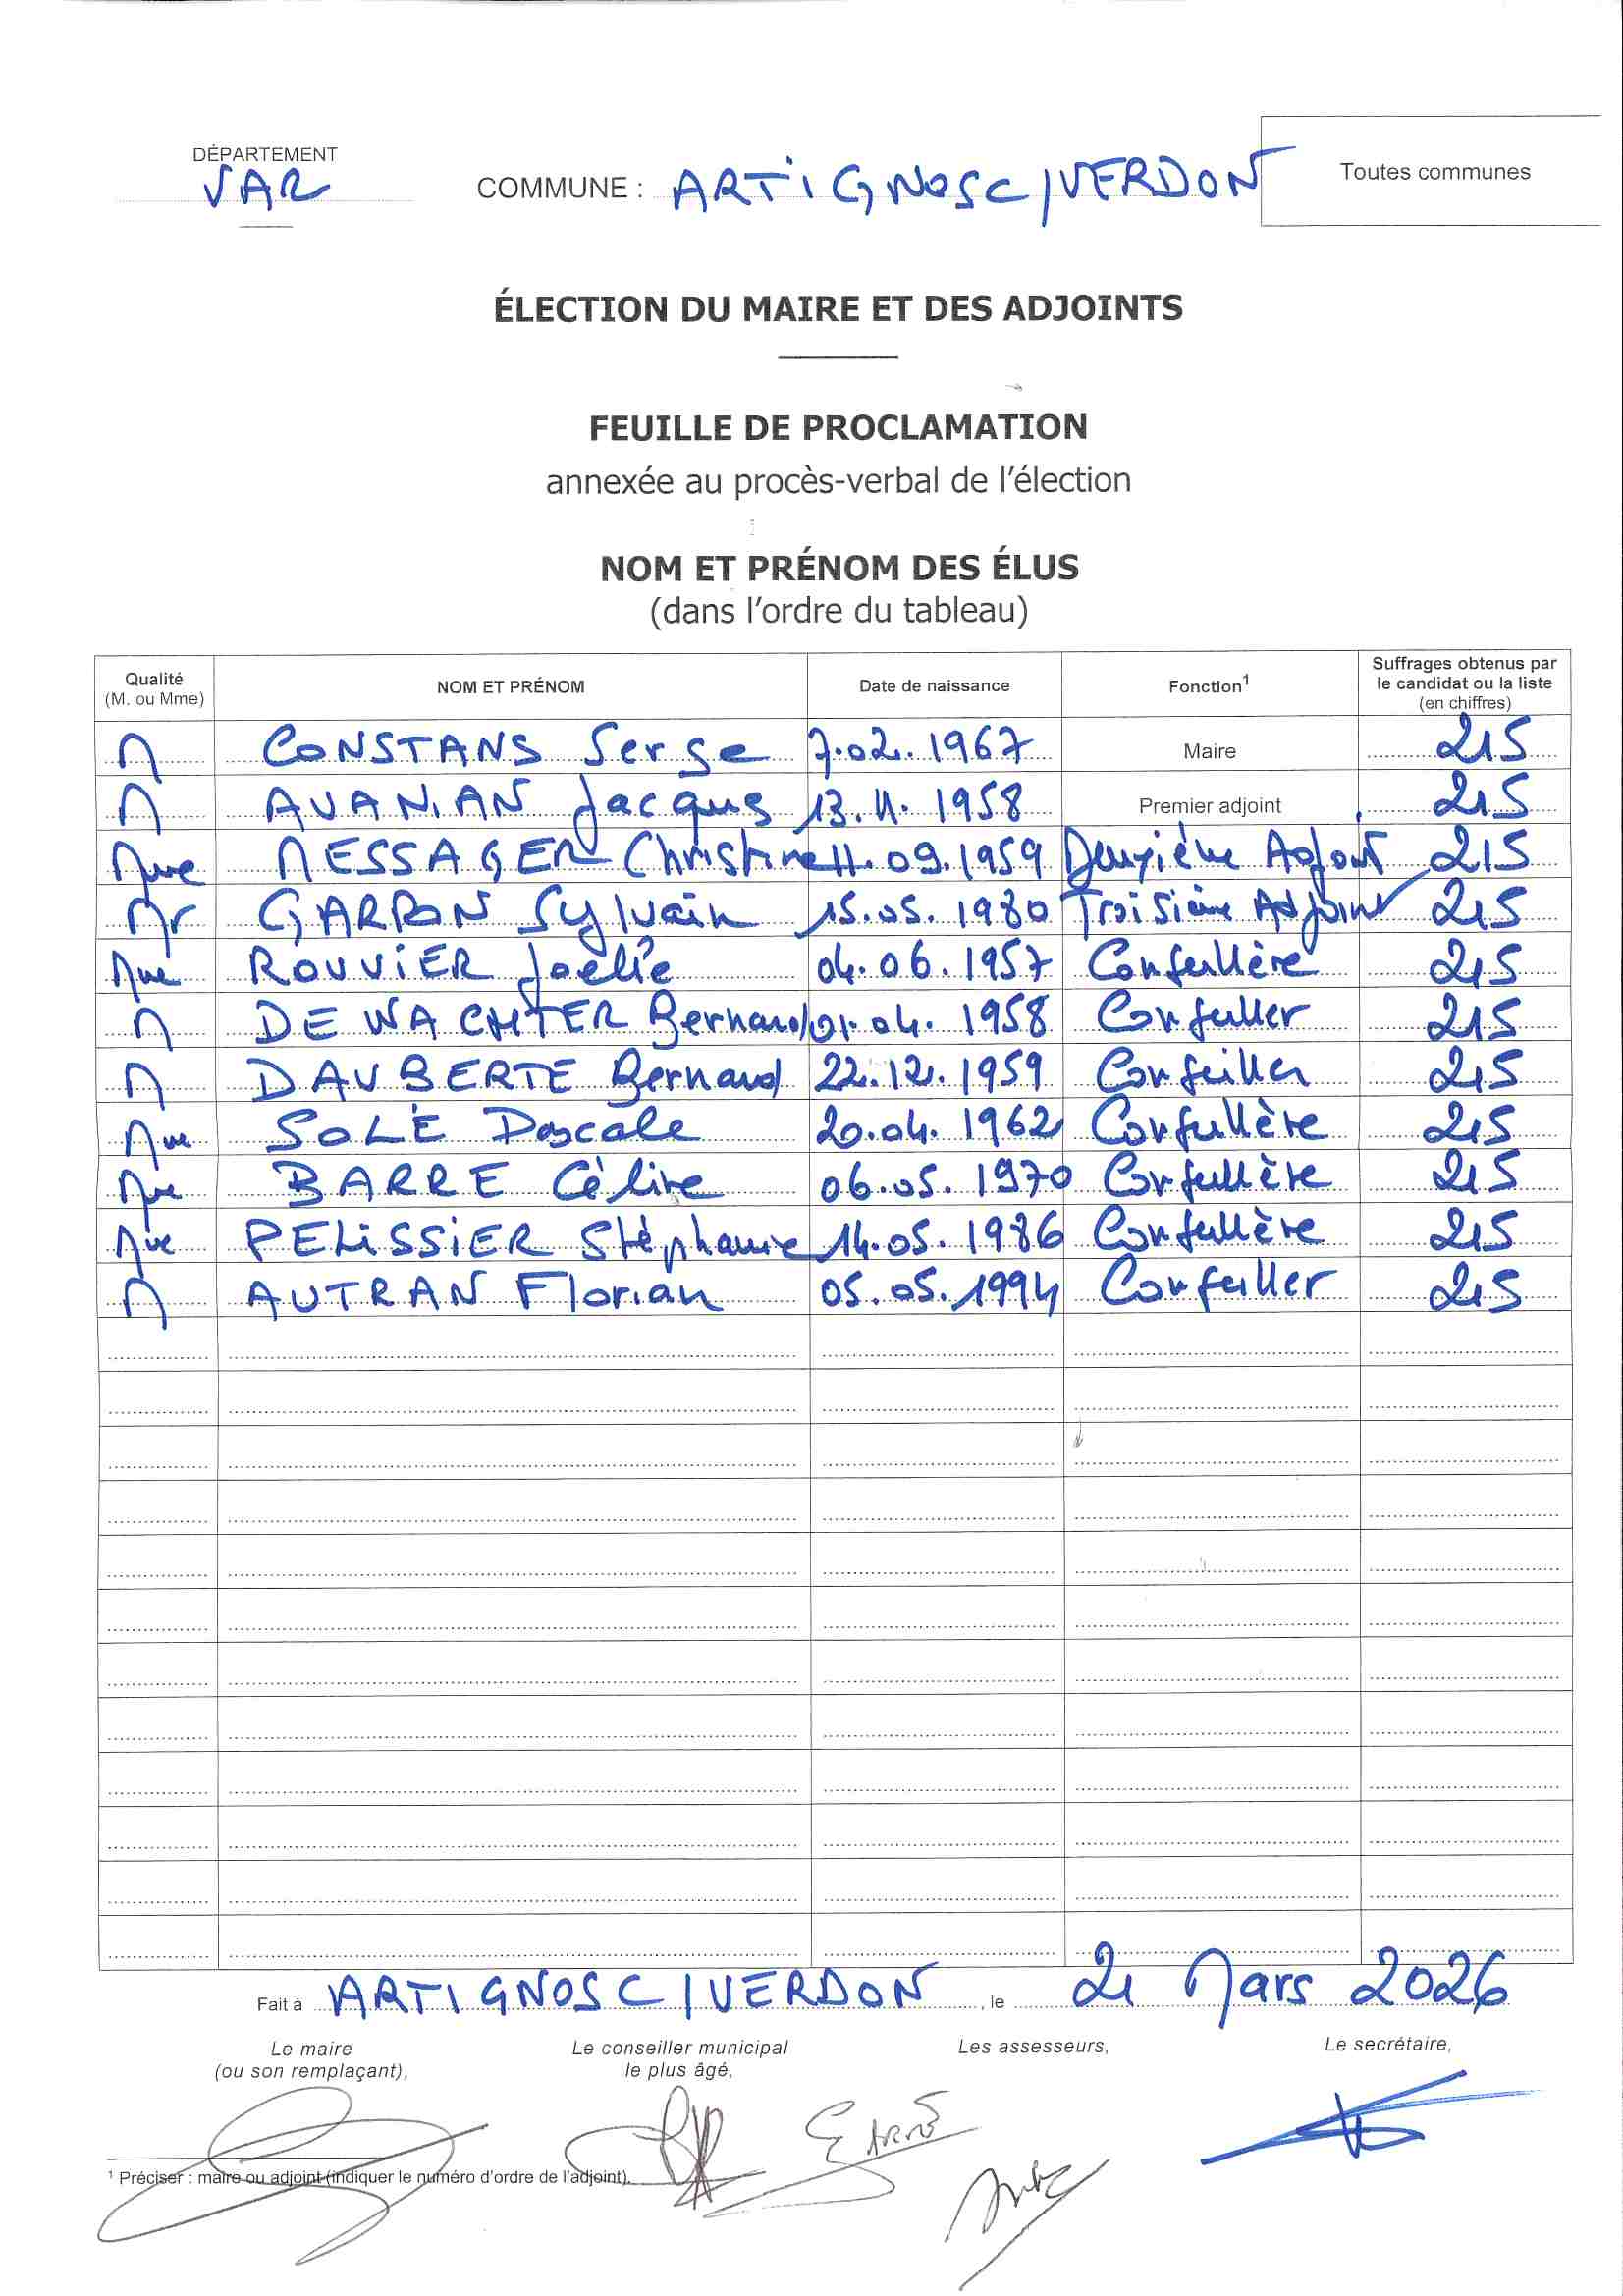 DÉPARTEMENT
VAR
COMMUNE : ARTIGNOSC/VERDON
Toutes communes
ÉLECTION DU MAIRE ET DES ADJOINTS
FEUILLE DE PROCLAMATION
annexée au procès-verbal de l'élection
NOM ET PRÉNOM DES ÉLUS
(dans l'ordre du tableau)
Qualité (M. ou Mme) NOM ET PRÉNOM Date de naissance Fonction¹ Suffrages obtenus par le candidat ou la liste (en chiffres)
M CONSTANS Serge 7.02.1967 Maire 215
M AVANIAN Jacques 13.11.1958 Premier adjoint 215
Mme MESSAGER Christine 11.09.1959 Deuxième Adjoint 215
Mr GARRON Sylvain 15.05.1980 Troisième Adjoint 215
Mme ROUVIER Joëlle 04.06.1957 Conseillère 215
M DE WACHTER Bernard 01.04.1958 Conseiller 215
M DAUBERTE Bernard 22.12.1959 Conseiller 215
Mme SOLÉ Pascale 20.04.1962 Conseillère 215
Mme BARRE Céline 06.05.1970 Conseillère 215
Mme PELISSIER Stéphanie 14.05.1986 Conseillère 215
M AUTRAN Florian 05.05.1994 Conseiller 215
Fait à ARTIGNOSC/VERDON, le 21 Mars 2026
Le maire (ou son remplaçant),
Le conseiller municipal le plus âgé,
Les assesseurs,
Le secrétaire,
¹ Préciser : maire ou adjoint (indiquer le numéro d'ordre de l'adjoint).